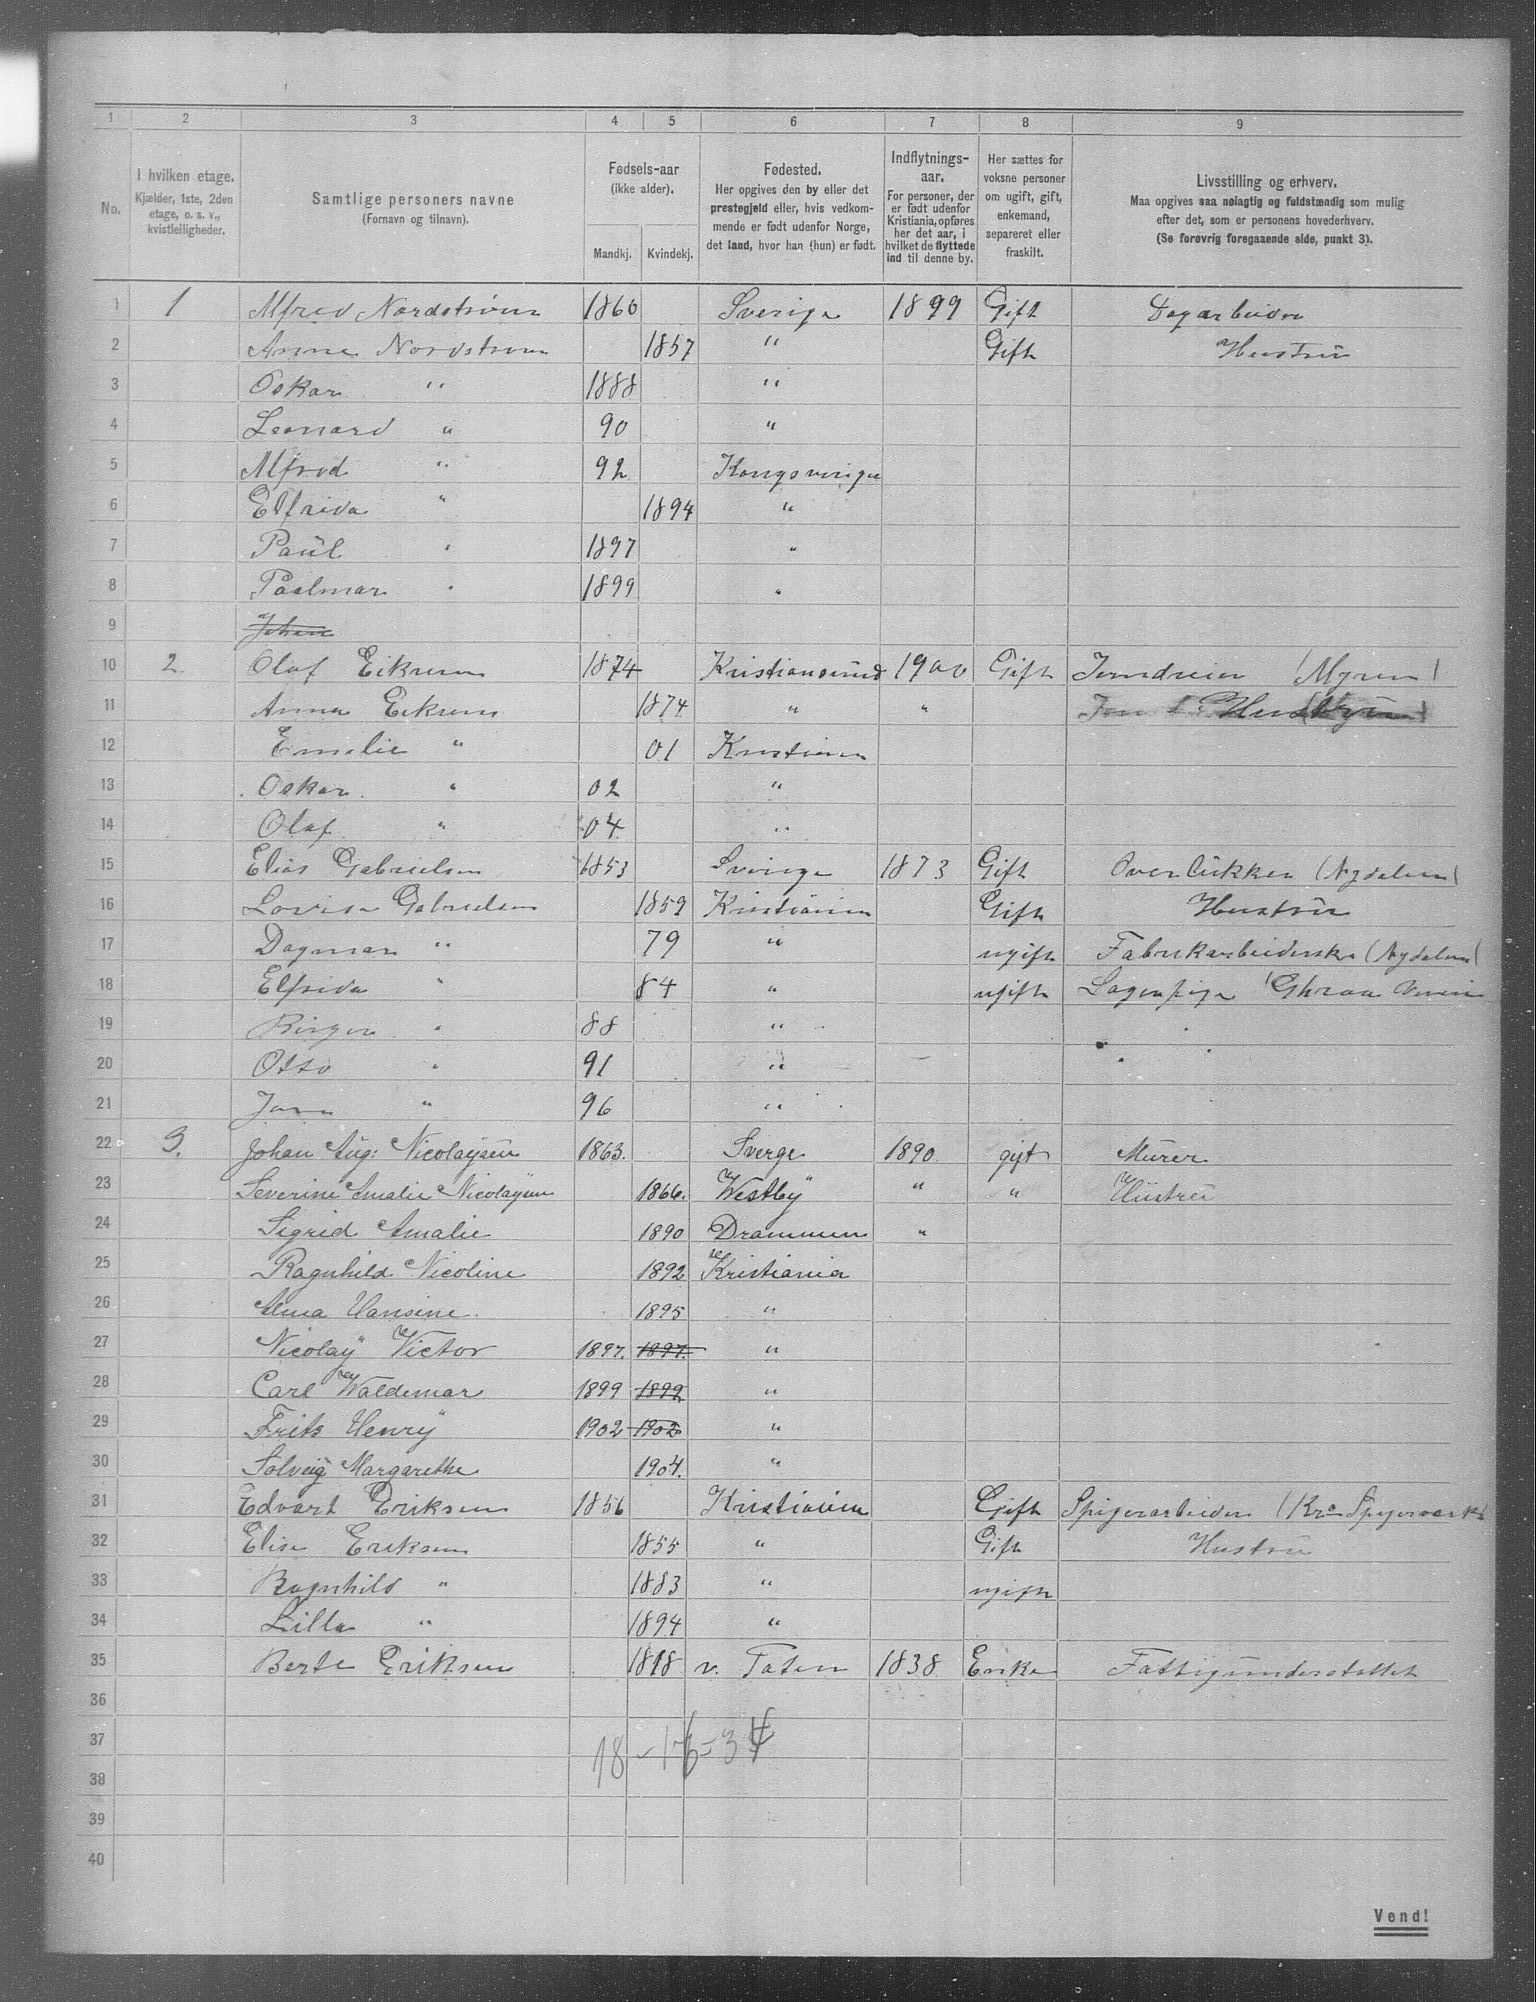 1 2 3 4 5 6 7 8 9
No.
I hvilken etage.
Kjælder, 1ste, 2den
etage, o. s. v.,
kvistleiligheder.
Samtlige personers navne
(Fornavn og tilnavn).
Fødsels-aar
(ikke alder).
Mandkj. Kvindekj.
Fødested.
Her opgives den by eller det
prestegjeld eller, hvis vedkom-
mende er født udenfor Norge,
det land, hvor han (hun) er født.
Indflytnings-
aar.
For personer, der
er født udenfor
Kristiania, opføres
her det aar, i
hvilket de flyttede
ind til denne by.
Her sættes for
voksne personer
om ugift, gift,
enkemand,
separeret eller
fraskilt.
Livsstilling og erhverv.
Maa opgives saa nøiagtig og fuldstændig som mulig
efter det, som er personens hovederhverv.
(Se forøvrig foregaaende side, punkt 3).
1 1 Alfred Nordstrøm 1860 Sverige 1899 Gift Dagarbeider
2 Anna Nordstrøm 1857 " Gift Hustru
3 Oskar " 1888 "
4 Leonard " 90 "
5 Alfred " 92 Kongsvinger
6 Elfrida " 1894 "
7 Paul " 1897 "
8 Paalmar " 1899 "
9 Johan
10 2. Olaf Eikrem 1874 Kristiansund 1900 Gift Jerndreier (Myren)
11 Anna Eikrem 1874 " " Hustru
12 Emelie " 01 Kristiania
13 Oskar " 02 "
14 Olaf " 04 "
15 Elias Gabrielsen 1853 Sverige 1873 Gift Overlukker (Nydalen)
16 Lovise Gabrielsen 1859 Kristiania Gift Hustru
17 Dagmar " 79 " ugift Fabrikarbeiderske (Nydalen)
18 Elfrida " 84 " ugift
19 Birger " 88 "
20 Otto " 91 "
21 " 96 "
22 3. Johan Aug: Nicolaÿsen 1863. Sverge 1890 gift Murer
23 Severine Amalie Nicolaysen 1866. Westbÿ " " Hustru
24 Sigrid Amalie 1890 Drammen "
25 Ragnhild Nicoline 1892 Kristiania
26 Alma Hansine. 1895 "
27 Nicolaÿ Victor 1897. 1897. "
28 Carl Waldemar 1899 1899 "
29 Frits Henrÿ 1902 1902 "
30 Solveig Margarethe 1904. "
31 Edvart Eriksen 1856 Kristiania Gift Spigerarbeider (Kra Spigerværk)
32 Elise Eriksen 1855 " Gift Hustru
33 Ragnhild " 1883 " ugift
34 Lilla " 1894 "
35 Berte Eriksen 1818 v. Toten 1838 Enke Fattigunderstøttet
36
37 18 - 16 = 34
38
39
40
Vend!